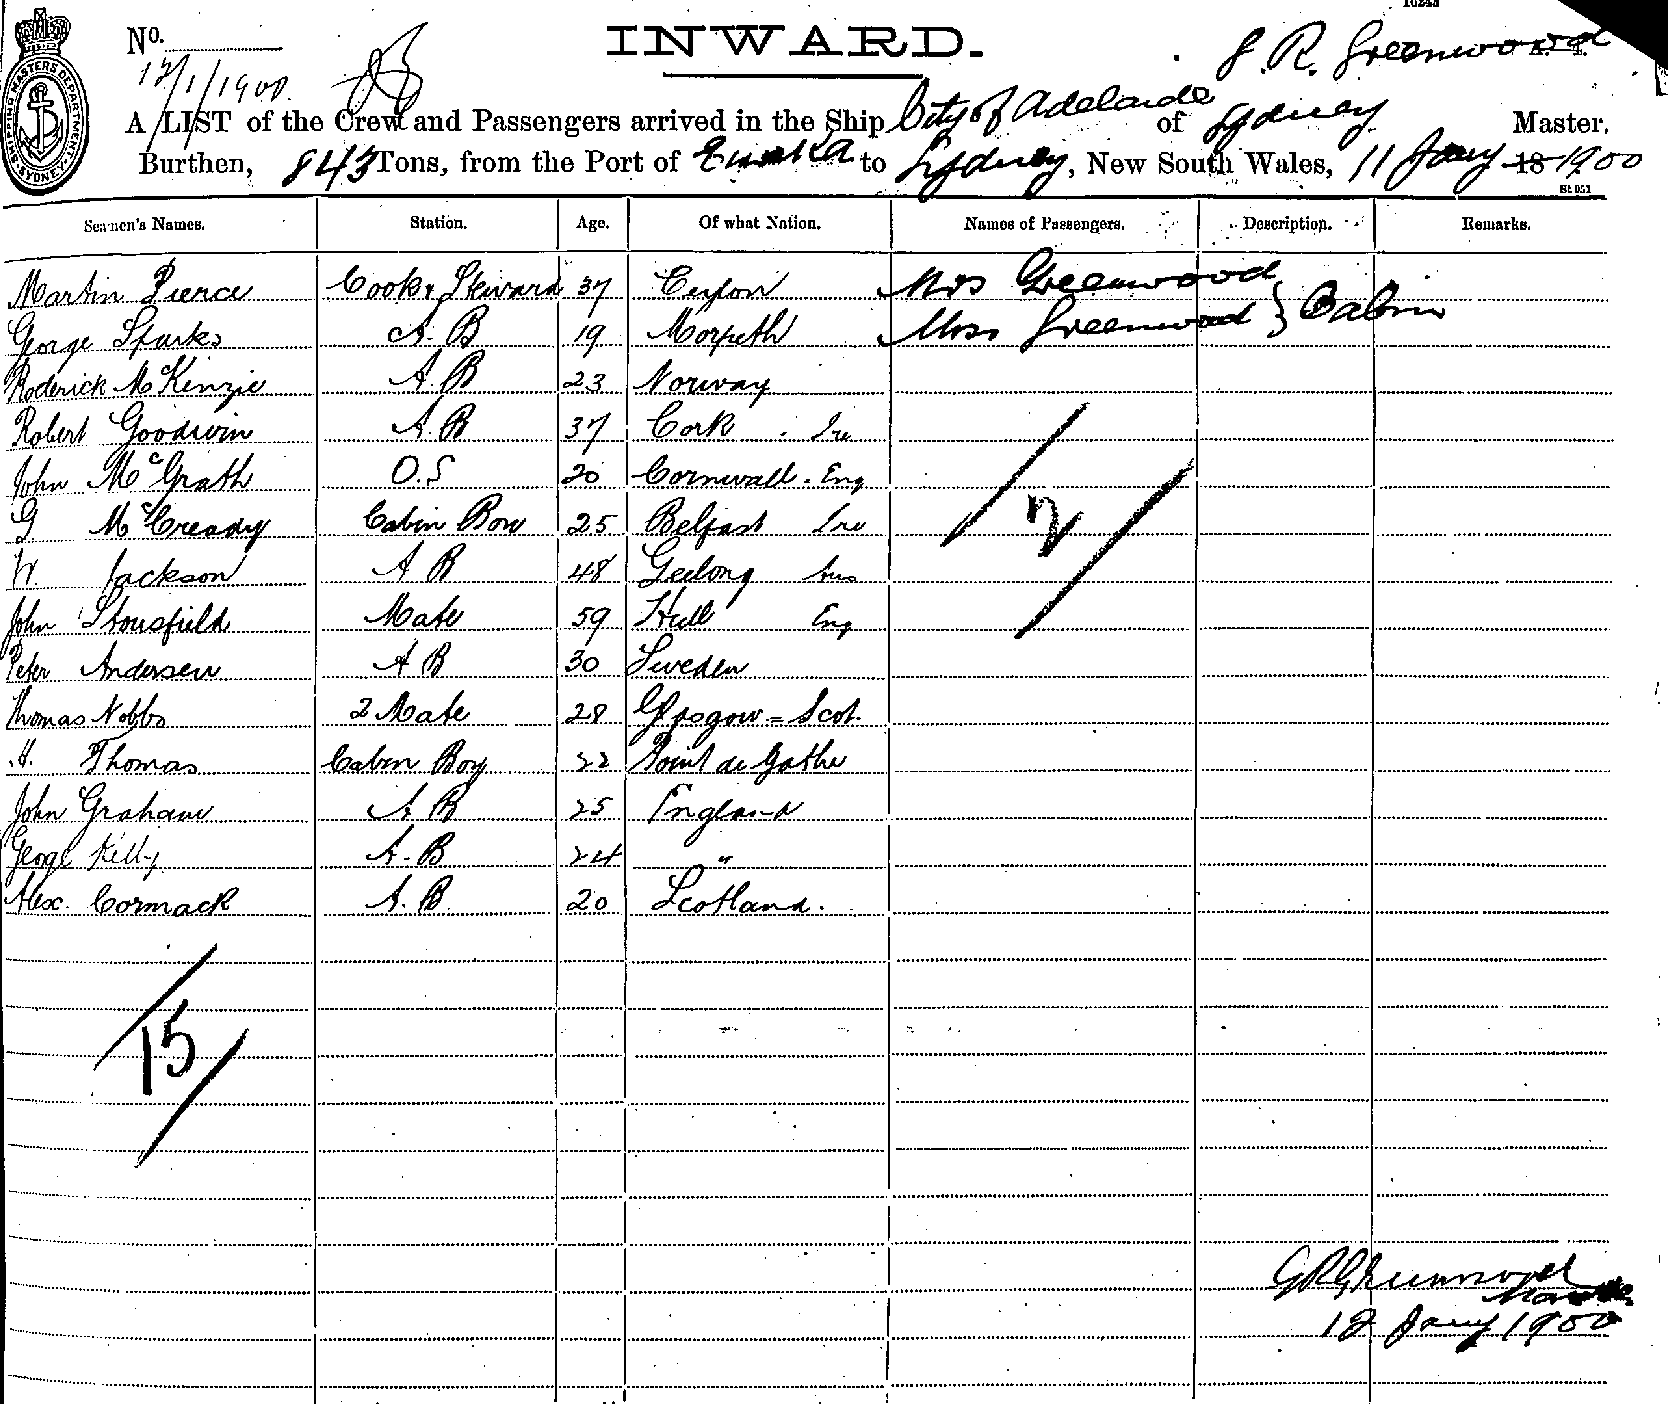 10243
No.
INWARD.
J. R. Greenwood
12/1/1900.
A LIST of the Crew and Passengers arrived in the Ship City of Adelaide of Sydney Master,
Burthen, 843 Tons, from the Port of Eureka to Sydney, New South Wales, 11 Jany 18 1900
St 051
SHIPPING MASTERS DEPARTMENT SYDNEY
Seamen's Names. Station. Age. Of what Nation. Names of Passengers. Description. Remarks.
Martin Pierce Cook & Steward 37 Ceylon Mrs Greenwood
George Sparks A. B 19 Morpeth Miss Greenwood } Cabin
Roderick McKenzie A. B 23 Norway
Robert Goodwin A. B 37 Cork . Ire
John McGrath O.S 20 Cornwall . Eng
G McCready Cabin Bow 25 Belfast Ire
W. Jackson A B 48 Geelong
John Stousfield Mate 59 Hull Eng
Peter Andersen A B 30 Sweden
Thomas Nobbs 2 Mate 28 Glasgow = Scot.
H. Thomas Cabin Boy 22 Point de Galle
John Graham A B 25 England
George Kelly A. B 24 "
Alex. Cormack A. B. 20 Scotland.
2
15
G R Greenwood
Master
12 Jany 1900